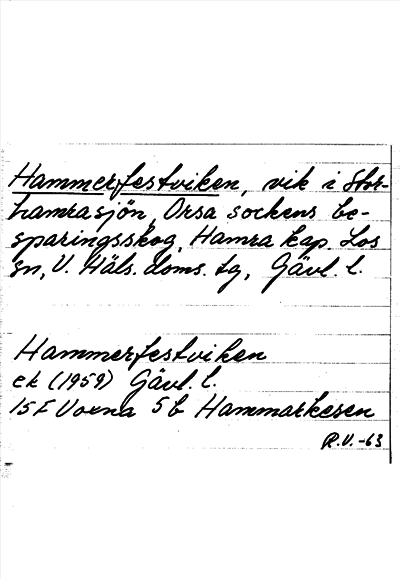 Hammerfestviken, vik i Stor-
hamrasjön, Orsa sockens be-
sparingsskog, Hamra kap. Los
sn, V. Häls. doms. tg, Gävl. l.
Hammerfestviken
ek (1959) Gävl. l.
15F Voxna 5b Hammarkesen
R.V.-63